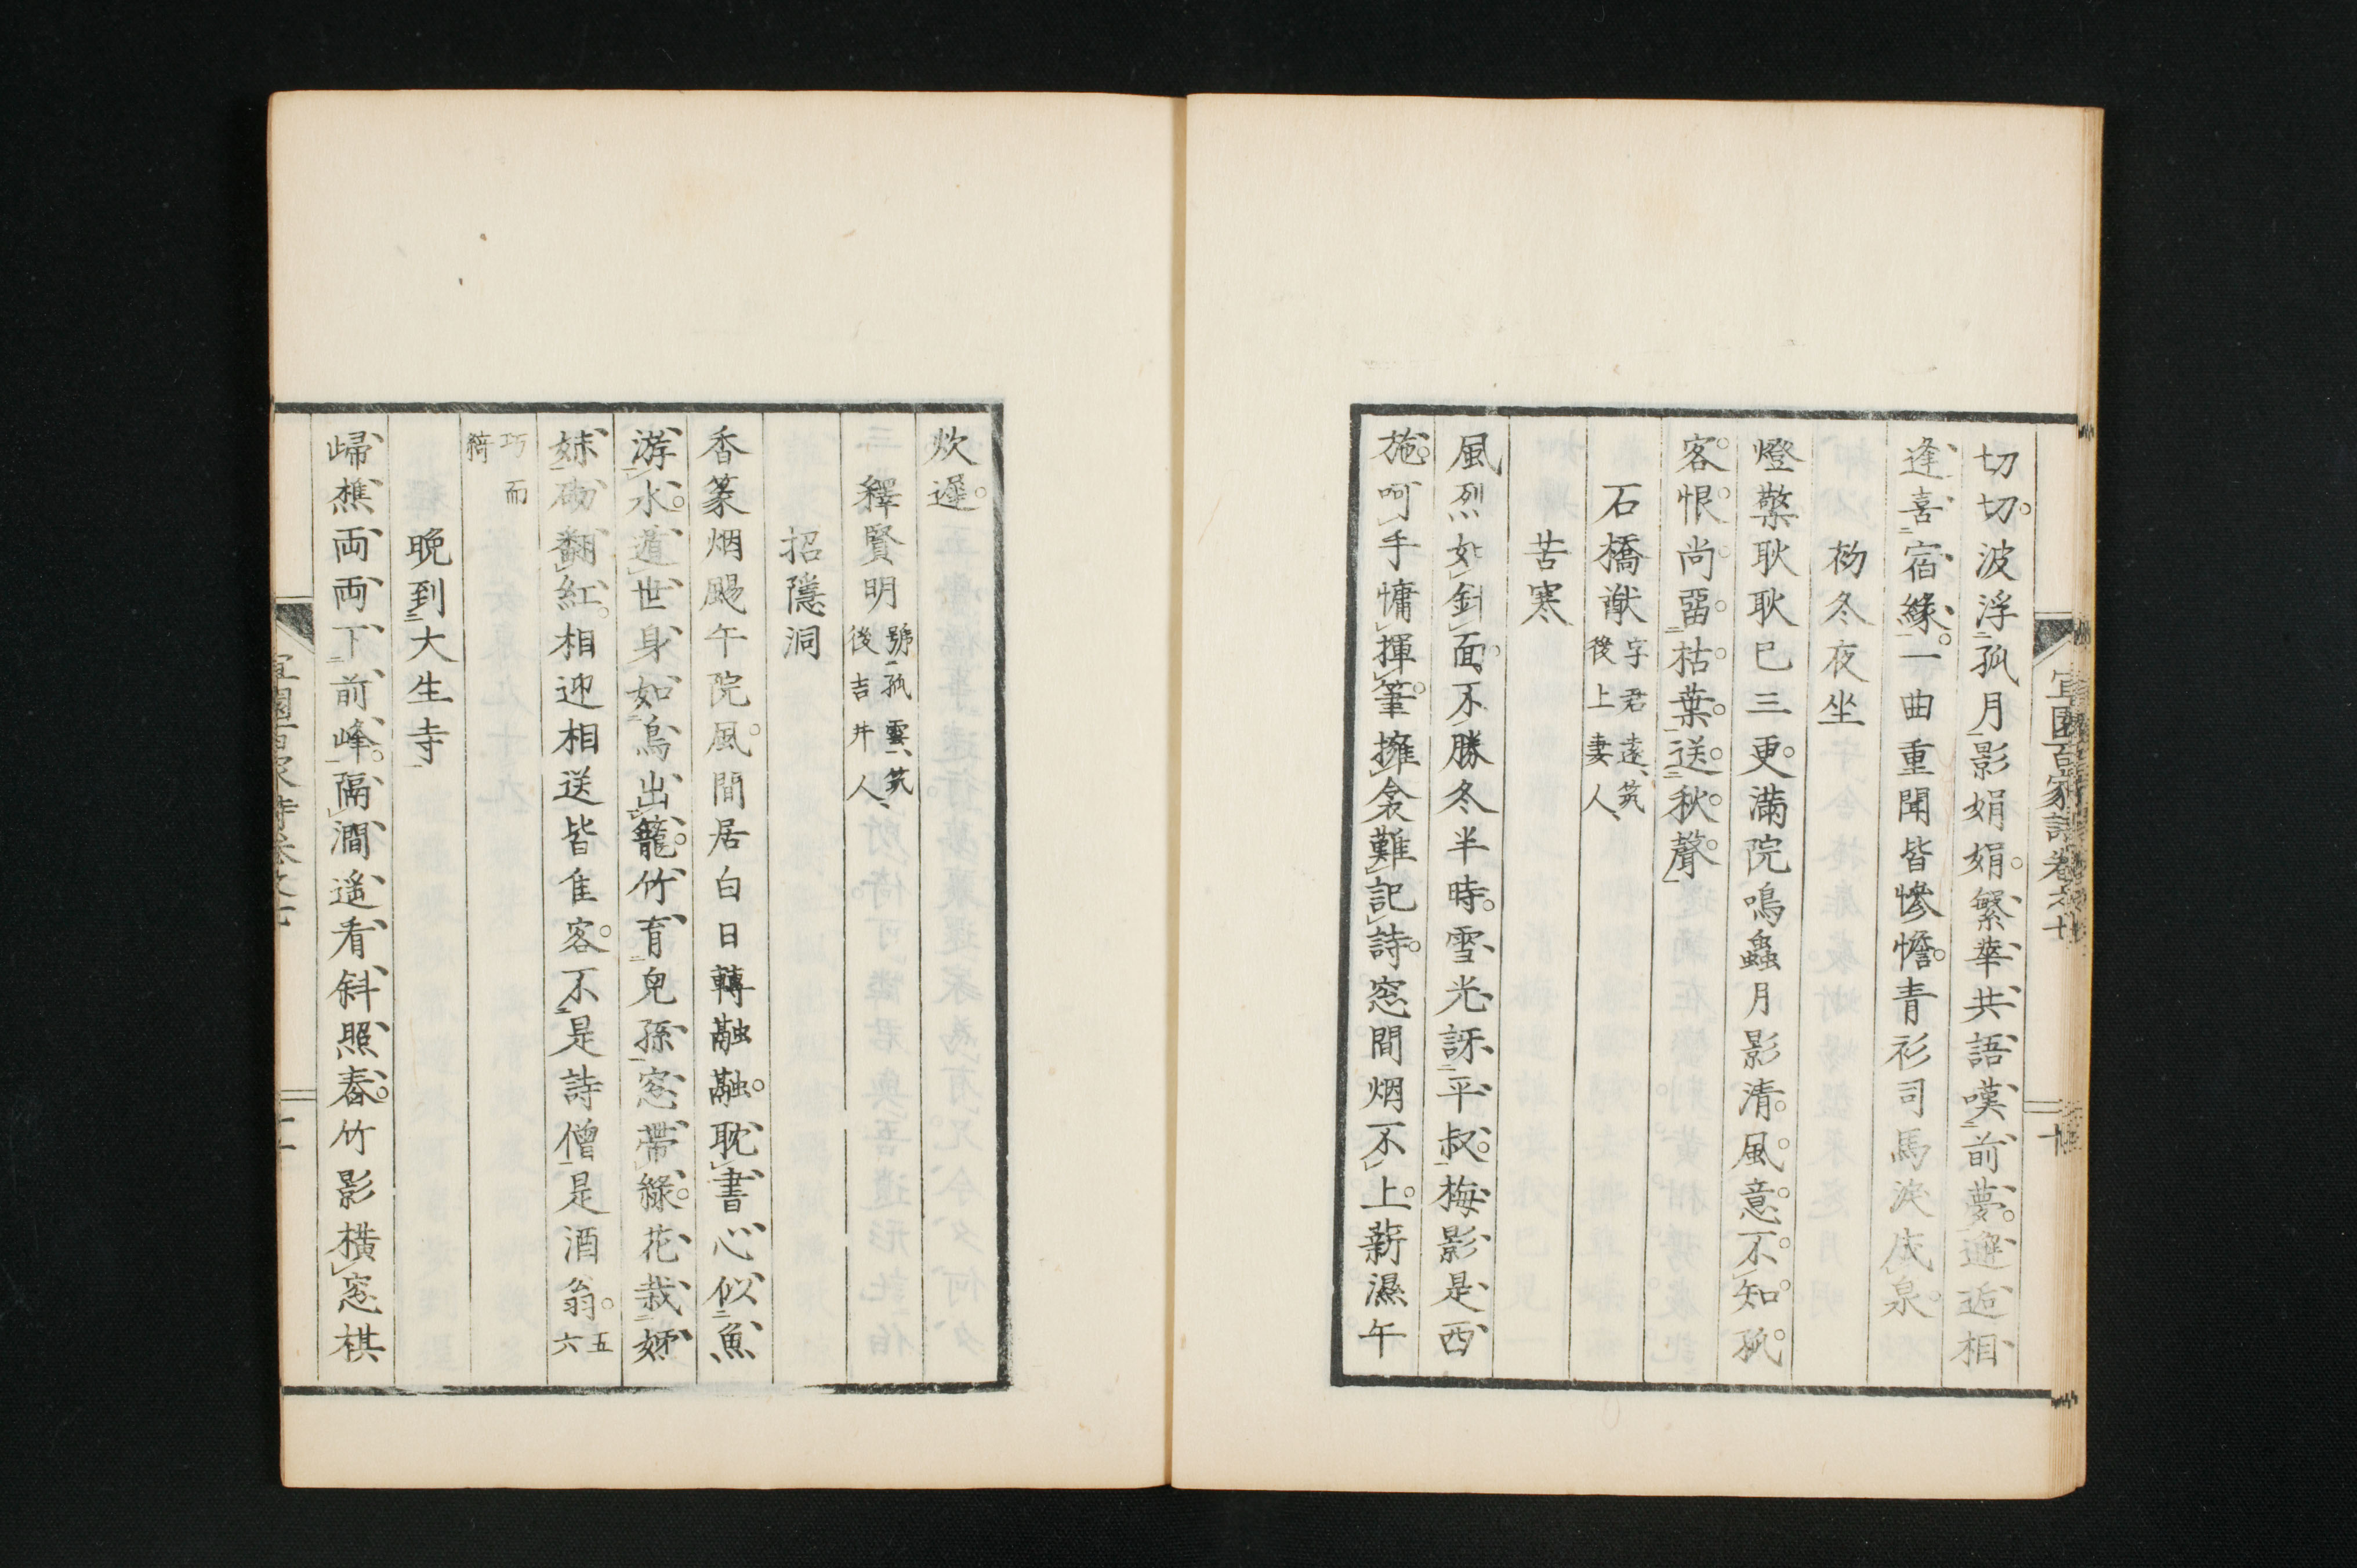 切切波浮孤月影娟娟繁華共語嘆前夢邂逅相
逢喜宿緣一曲重聞皆慘憺青衫司馬淚成泉
初冬夜坐
燈檠耿耿已三更滿院鳴蟲月影清風意不知孤
客恨尚畱枯葉送秋聲
石橋猷
字君遠、筑
後上妻人、
苦寒
風烈如針面不勝冬半時雪光訝平叔梅影是西
施呵手慵揮筆擁衾難記詩窓間烟不上薪濕午
炊遲
釋賢明
號孤雲、筑
後吉井人、
招隱洞
香篆烟颺午院風間居白日轉融融耽書心似魚
游水遁世身如鳥出籠竹育兒孫窓帶綠花栽姊
妹砌翻紅相迎相送皆隹客不是詩僧是酒翁
五
六
巧而
綺
晚到大生寺
歸樵兩兩下前峰隔澗遙看斜照舂竹影橫窓棋
宜園百家詩卷之七